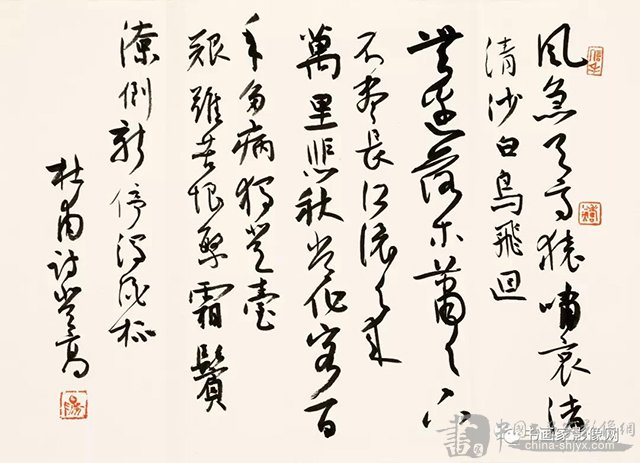 風急天高猿嘯哀渚
清沙白鳥飛迴
無邊落木蕭々下
不盡長江滾々來
萬里悲秋常作客百
年多病獨登臺
艱難苦恨繁霜鬢
潦倒新停濁酒杯
杜甫詩登高
書
书画家影像网
china-shjyx.com